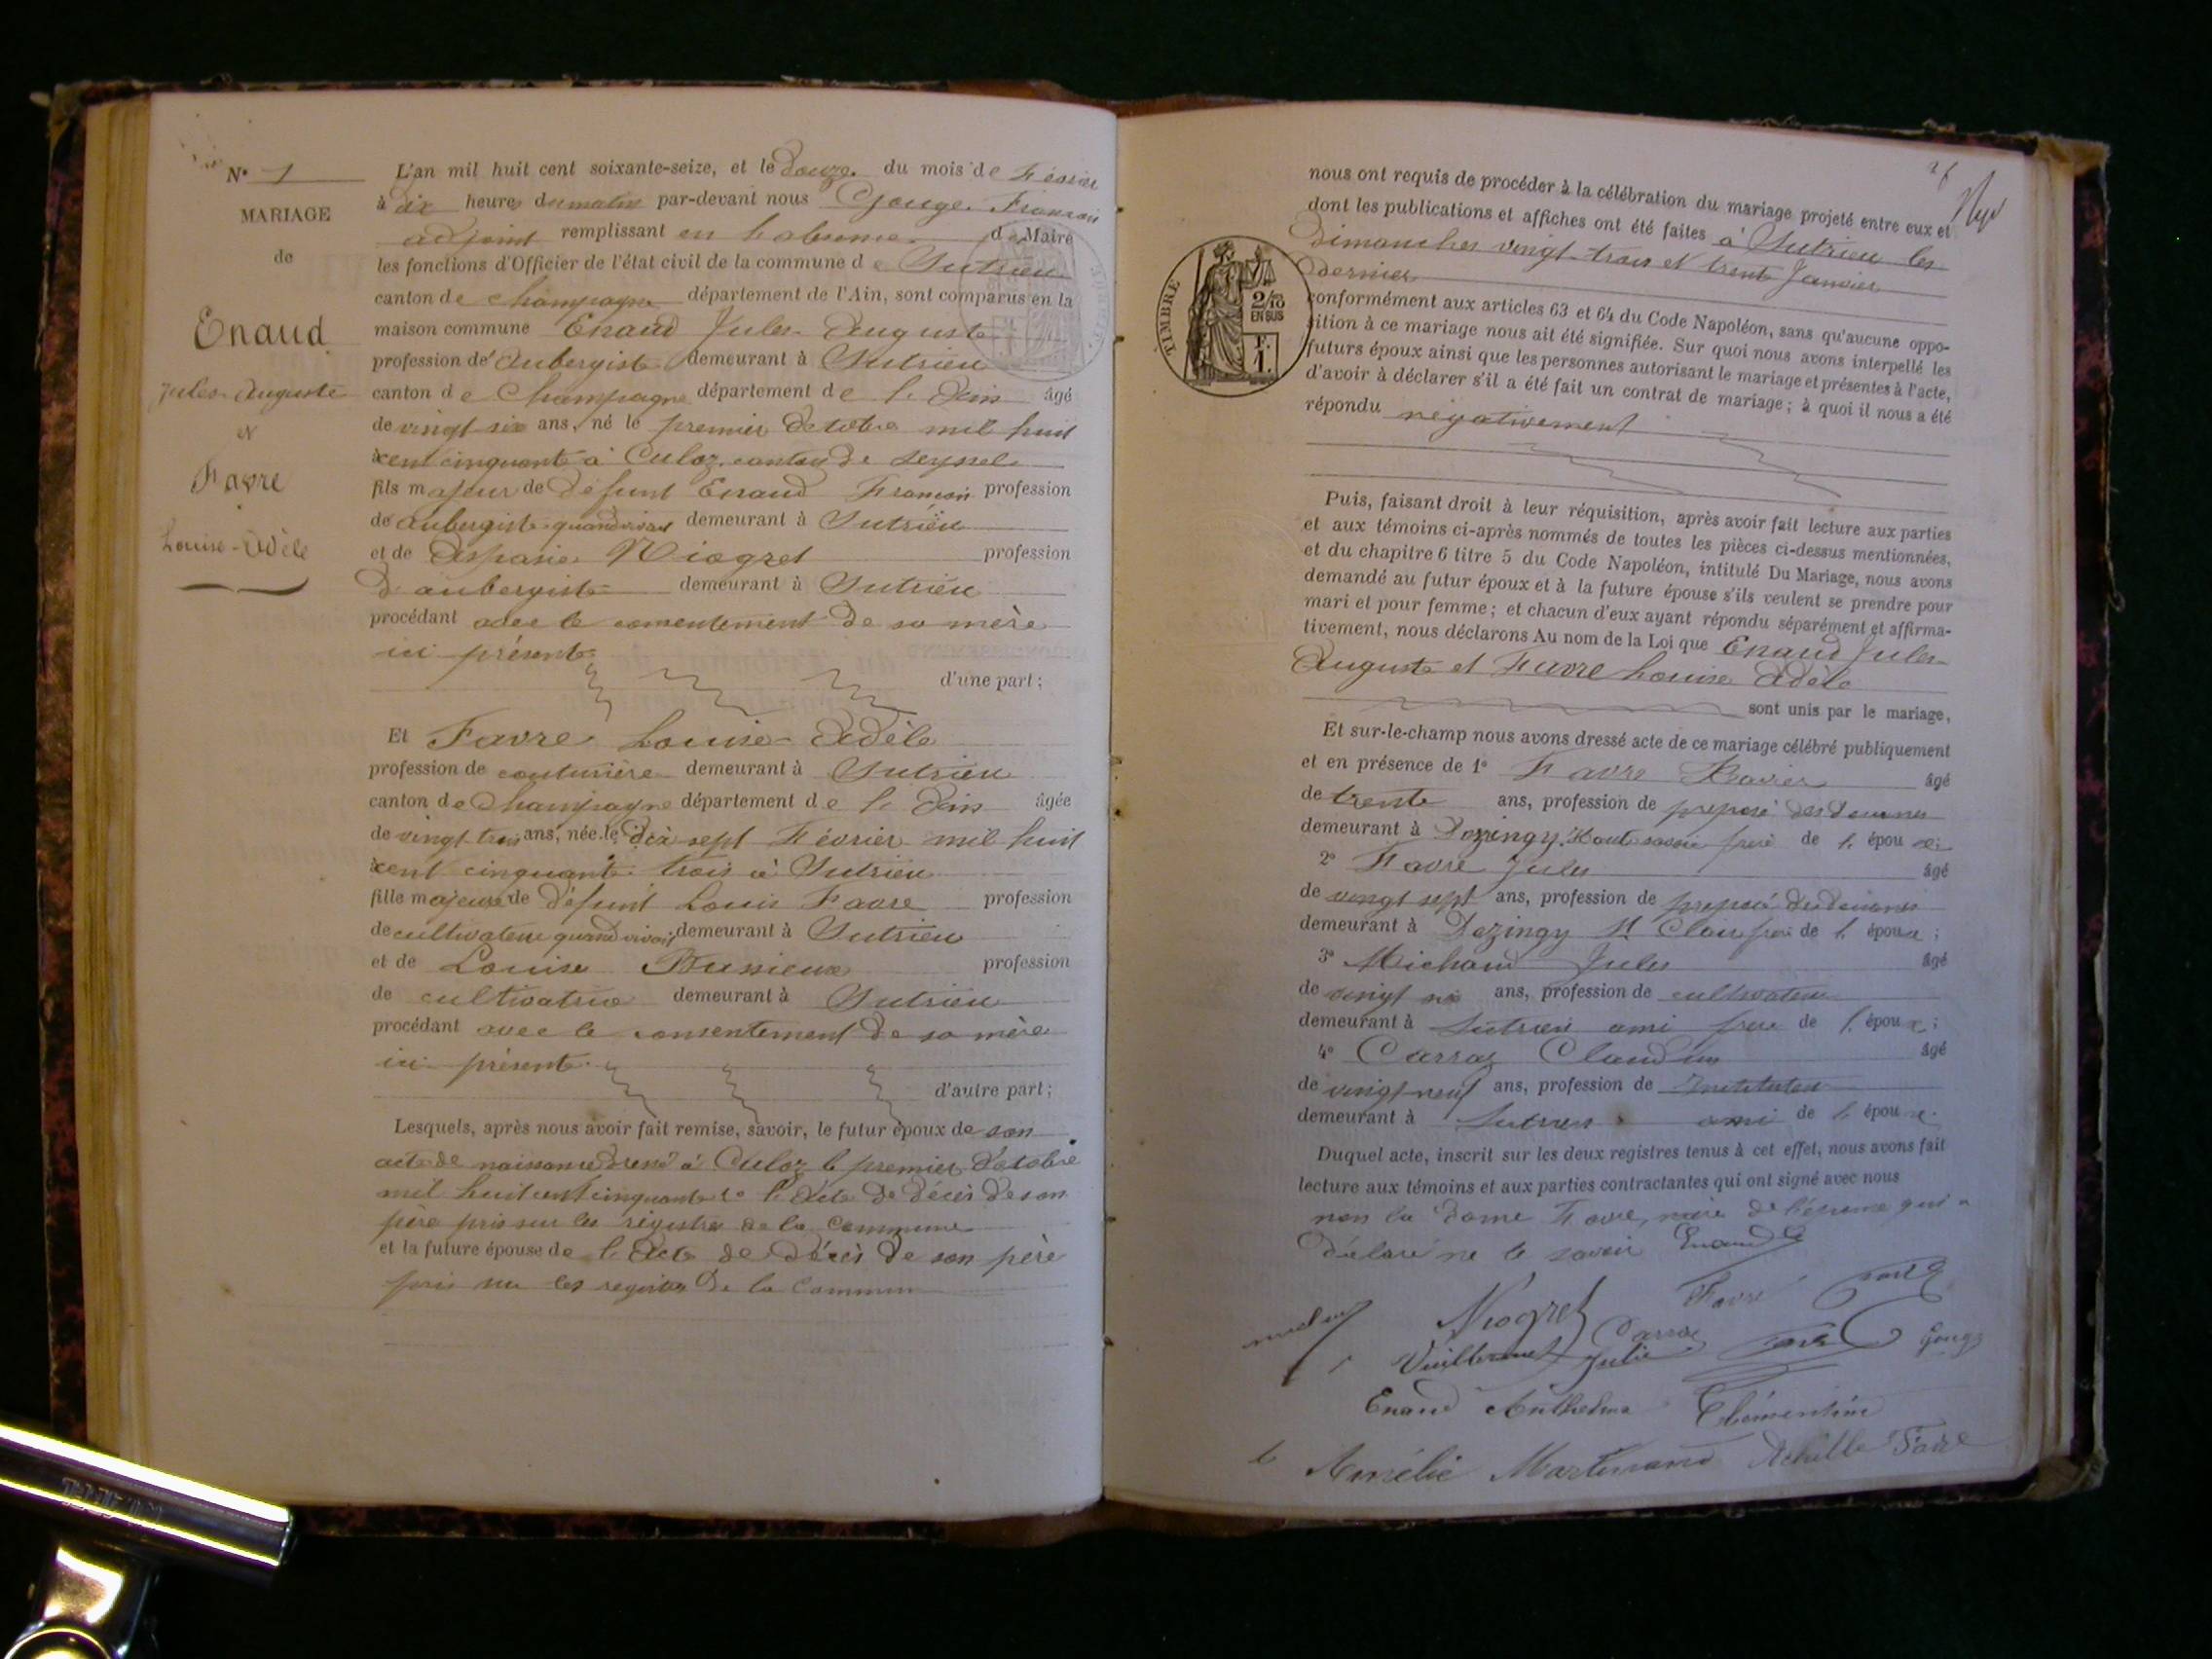 N° 1
MARIAGE
de
Enaud
Jules-Auguste
et
Favre
Louise-Adèle
L'an mil huit cent soixante-seize, et le douze du mois de Février
à dix heures du matin par-devant nous Gouge François
adjoint remplissant en l'absence du Maire
les fonctions d'Officier de l'état civil de la commune de Sutrieu
canton de Champagne département de l'Ain, sont comparus en la
maison commune Enaud Jules Auguste
profession de aubergiste demeurant à Sutrieu
canton de Champagne département de l'Ain âgé
de vingt six ans, né le premier Octobre mil huit
cent cinquante à Culoz canton de Seyssel
fils majeur de défunt Enaud François profession
de aubergiste quand vivait demeurant à Sutrieu
et de Aspasie Niogret profession
d'aubergiste demeurant à Sutrieu
procédant avec le consentement de sa mère
ici présente
d'une part;
Et Favre Louise-Adèle
profession de couturière demeurant à Sutrieu
canton de Champagne département de l'Ain âgée
de vingt trois ans, née le dix sept Février mil huit
cent cinquante trois à Sutrieu
fille majeure de défunt Louis Favre profession
de cultivateur quand vivait demeurant à Sutrieu
et de Louise Bussieux profession
de cultivatrice demeurant à Sutrieu
procédant avec le consentement de sa mère
ici présente
d'autre part;
Lesquels, après nous avoir fait remise, savoir, le futur époux de son
acte de naissance dressé à Culoz le premier Octobre
mil huit cent cinquante de l'Acte de décès de son
père pris sur les registres de la Commune
et la future épouse de l'Acte de décès de son père
pris sur les registres de la Commune
nous ont requis de procéder à la célébration du mariage projeté entre eux et
dont les publications et affiches ont été faites à Sutrieu les
dimanches vingt-trois et trente Janvier
dernier
TIMBRE
2/10
EN SUS
F.
1.
conformément aux articles 63 et 64 du Code Napoléon, sans qu'aucune oppo-
sition à ce mariage nous ait été signifiée. Sur quoi nous avons interpellé les
futurs époux ainsi que les personnes autorisant le mariage et présentes à l'acte,
d'avoir à déclarer s'il a été fait un contrat de mariage; à quoi il nous a été
répondu négativement
Puis, faisant droit à leur réquisition, après avoir fait lecture aux parties
et aux témoins ci-après nommés de toutes les pièces ci-dessus mentionnées,
et du chapitre 6 titre 5 du Code Napoléon, intitulé Du Mariage, nous avons
demandé au futur époux et à la future épouse s'ils veulent se prendre pour
mari et pour femme; et chacun d'eux ayant répondu séparément et affirma-
tivement, nous déclarons Au nom de la Loi que Enaud Jules
Auguste et Favre Louise Adèle
sont unis par le mariage,
Et sur-le-champ nous avons dressé acte de ce mariage célébré publiquement
et en présence de 1° Favre Xavier âgé
de trente ans, profession de préposé des Douanes
demeurant à Dozingy Haute savoie frère de l'épouse
2° Favre Jules âgé
de vingt sept ans, profession de préposé des douanes
demeurant à Dezingy St Clair frère de l'épouse;
3° Michaud Jules âgé
de vingt six ans, profession de cultivateur
demeurant à Sutrieu ami frere de l'époux;
4° Carraz Claudius âgé
de vingt-neuf ans, profession de Instituteur
demeurant à Sutrieu ami de l'époux
Duquel acte, inscrit sur les deux registres tenus à cet effet, nous avons fait
lecture aux témoins et aux parties contractantes qui ont signé avec nous
non la dame Favre, mère de l'épouse qui a
déclaré ne le savoir Enaud
Favre
Niogret Carraz
Vuillermet Julie Favre Gouge
Enaud Anthelme Clémentine
Amélie Martinand Achille Favre